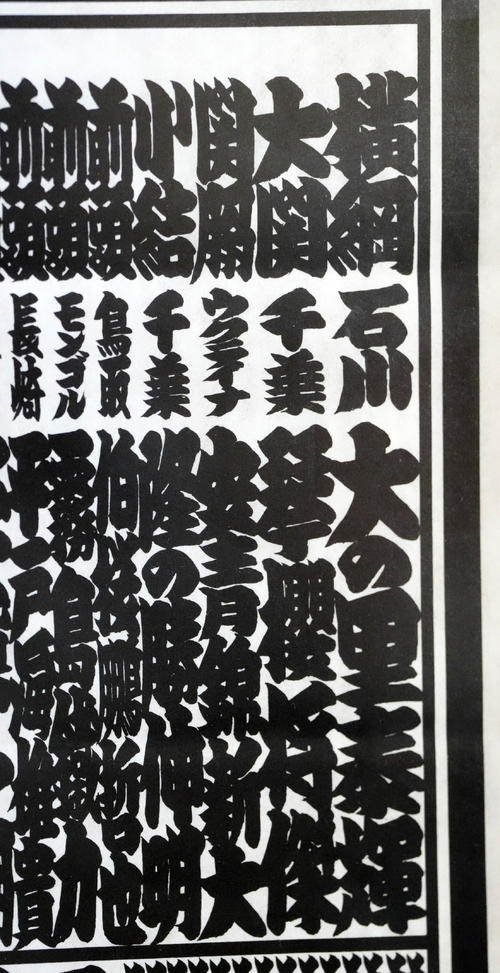 横綱 石川 大の里泰輝
大関 千葉 琴櫻将傑
関脇 ウクライナ 安青錦新大
小結 千葉 隆の勝伸明
前頭 鳥取 伯桜鵬哲也
前頭 モンゴル 霧島鐵力
前頭 長崎 平戸海雄貴